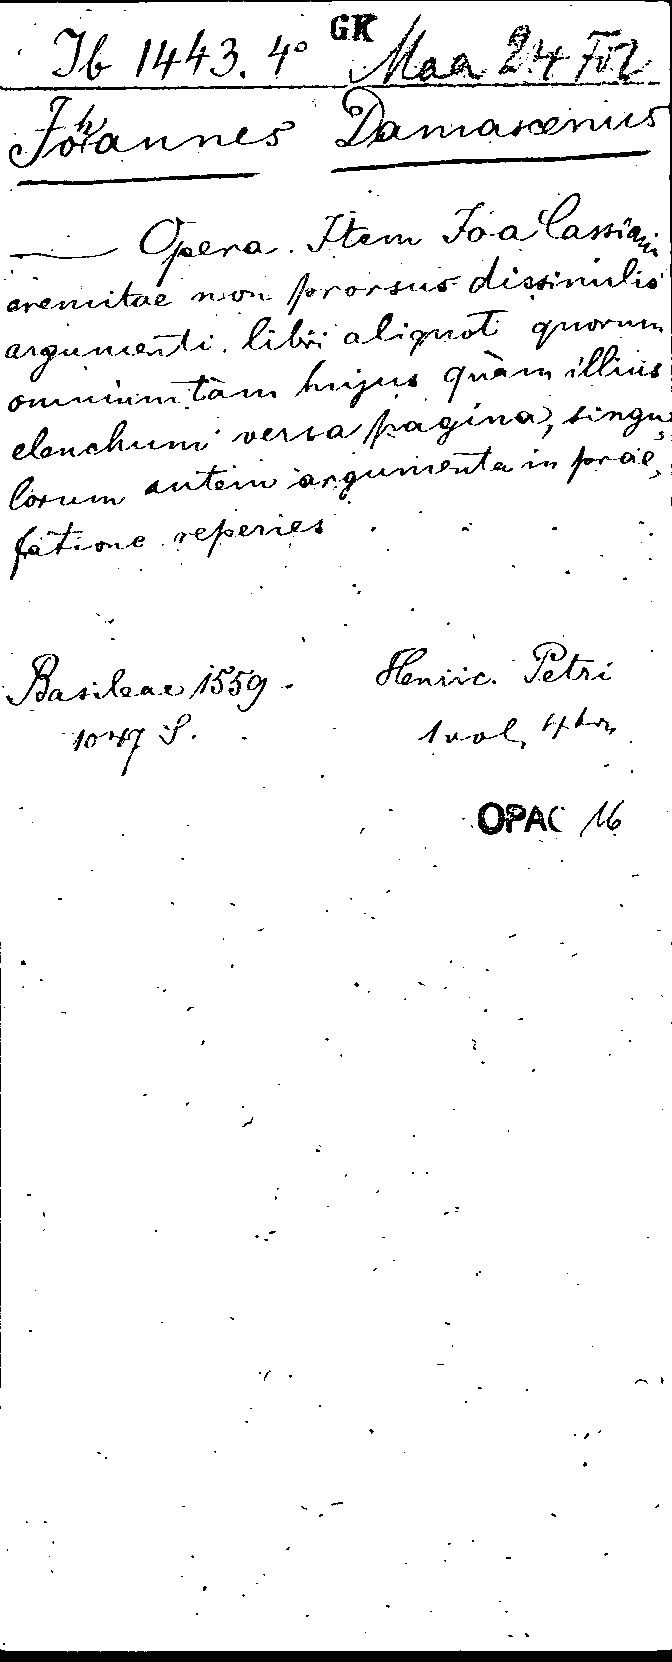 Ib 1443. 4° GK Maa 24 Fol
Johannes Damascenius
— Opera. Item Joa Cassiani
eremitae non prorsus dissimilis
argumenti libri aliquot quorum
omnium tam hujus quàm illius
elenchum versa pagina, singu,
lorum autem argumenta in prae,
fatione reperies.
Basileae 1559. Henric. Petri
1047 S. 1 vol,
OPAC 16